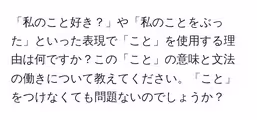 「私のこと好き？」や「私のことをぶっ
た」といった表現で「こと」を使用する理
由は何ですか？この「こと」の意味と文法
の働きについて教えてください。「こと」
をつけなくても問題ないのでしょうか？